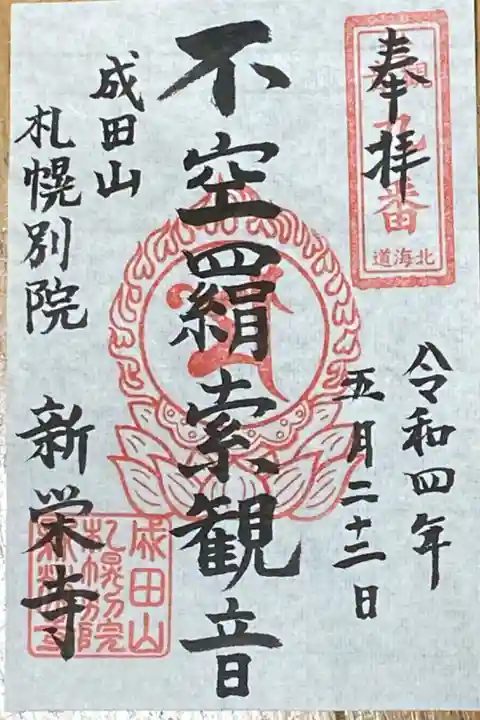 奉拝
九番
北海道
令和四年
五月二十二日
不空羂索観音
成田山
札幌別院
新栄寺
成田山
札幌別院
新栄寺